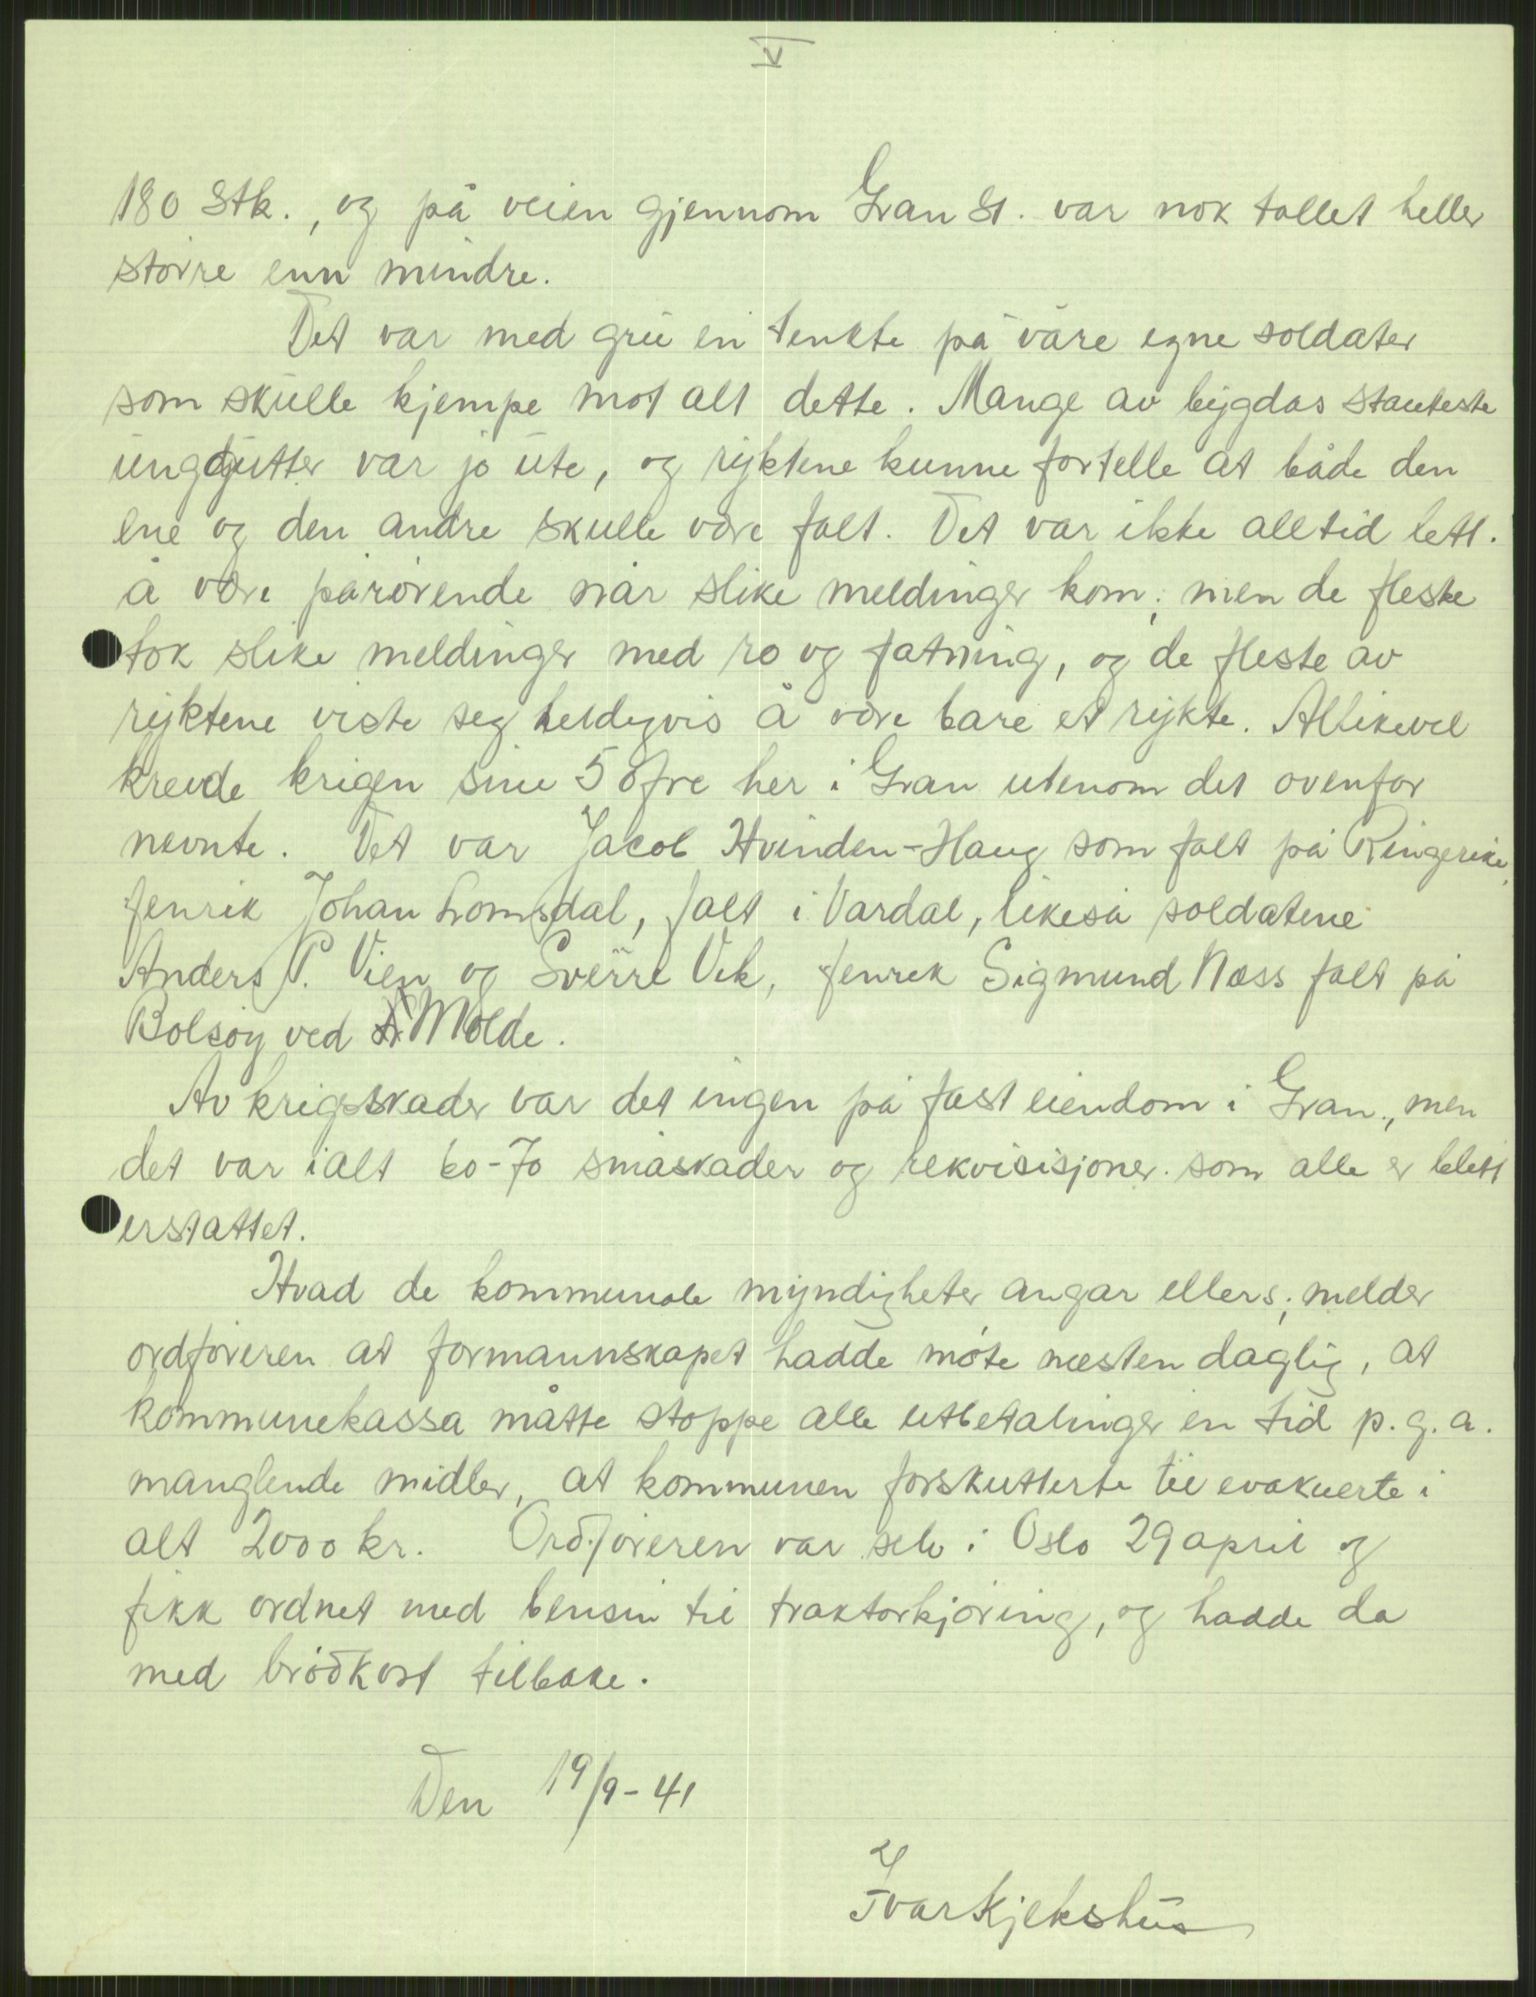 V
180 Stk., og på veien gjennom Gran St. var nok tallet heller
større enn mindre.
Det var med gru en tenkte på våre egne soldater
som skulle kjempe mot alt dette. Mange av bygdas stauteste
unggutter var jo ute, og ryktene kunne fortelle at både den
ene og den andre skulle være falt. Det var ikke alltid lett.
å være pårørende når slike meldinger kom; men de fleste
tok slike meldinger med ro og fatning, og de fleste av
ryktene viste seg heldigvis å være bare et rykte. Allikevel
krevde krigen sine 5 ofre her i Gran utenom det ovenfor
nevnte. Det var Jacob Hvinden-Haug som falt på Ringerike,
fenrik Johan Lomsdal, falt i Vardal, likeså soldatene
Anders P. Vien og Sverre Vik, fenrik Sigmund Næss falt på
Bolsøy ved Molde.
Av krigsskader var det ingen på fast eiendom i Gran, men
det var ialt 60-70 småskader og rekvisisjoner som alle er blett
erstattet.
Hvad de kommunale myndigheter angår ellers; melder
ordføreren at formannskapet hadde møte næsten daglig, at
kommunekassa måtte stoppe alle utbetalinger en tid p.g.a.
manglende midler, at kommunen forskutterte til evakuerte i
alt 2000 kr. Ordføreren var selv i Oslo 29 april og
fikk ordnet med bensin til traktorkjøring, og hadde da
med brødkort tilbake.
Den 19/9-41
Ivar Kjekshus